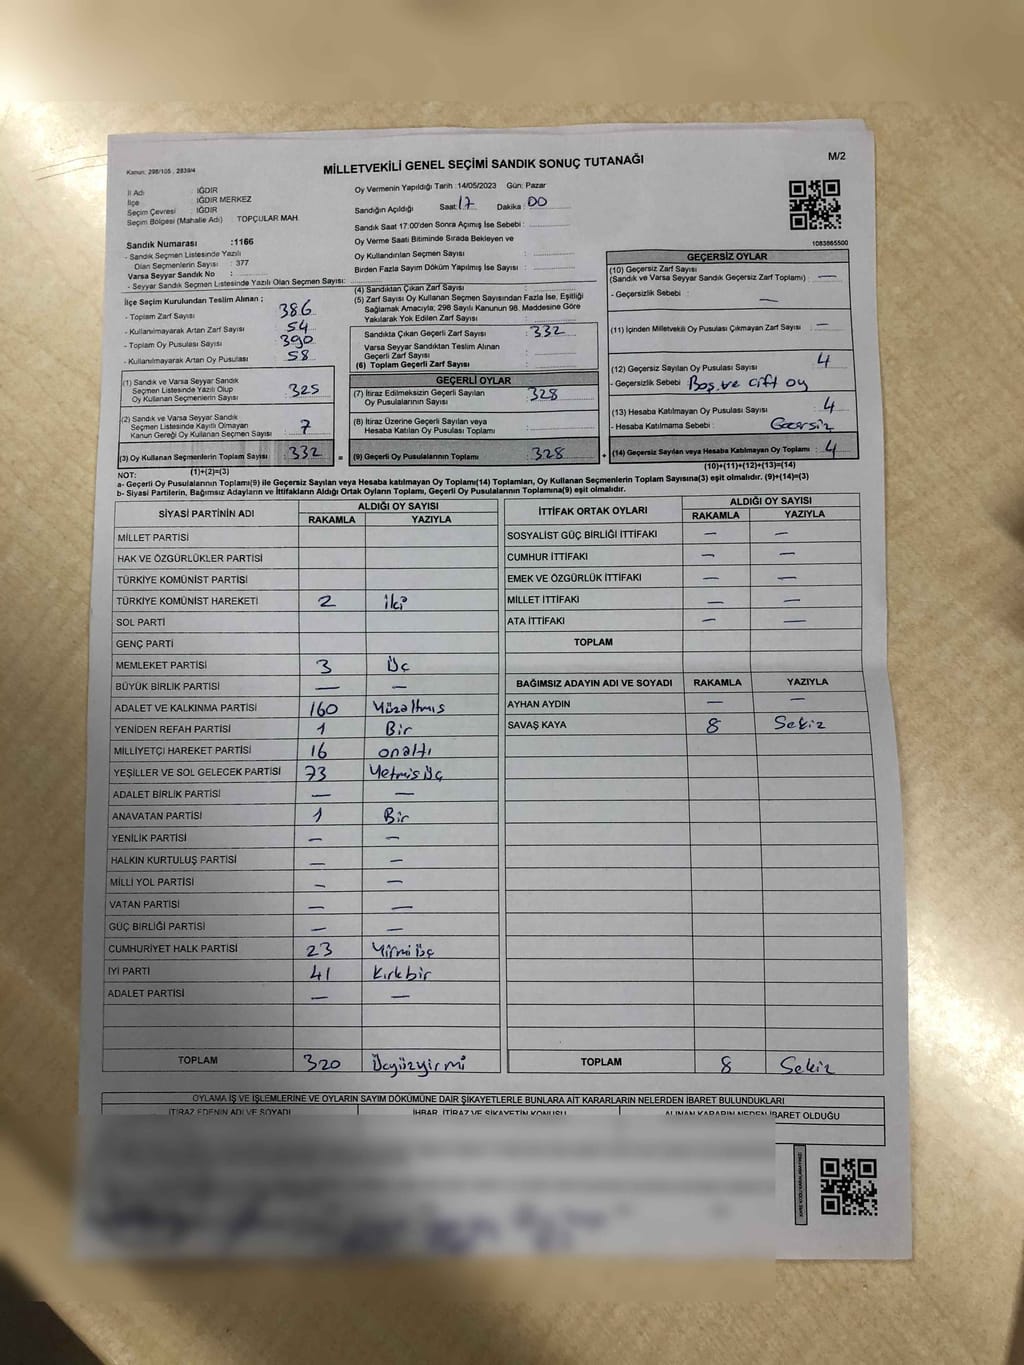 Kanun: 298/105 , 2839/4
MİLLETVEKİLİ GENEL SEÇİMİ SANDIK SONUÇ TUTANAĞI
M/2
İl Adı : IĞDIR
İlçe : IĞDIR MERKEZ
Seçim Çevresi : IĞDIR
Seçim Bölgesi (Mahalle Adı) TOPÇULAR MAH.
Sandık Numarası :1166
- Sandık Seçmen Listesinde Yazılı
Olan Seçmenlerin Sayısı : 377
Varsa Seyyar Sandık No :
- Seyyar Sandık Seçmen Listesinde Yazılı Olan Seçmen Sayısı:
Oy Vermenin Yapıldığı Tarih :14/05/2023 Gün: Pazar
Sandığın Açıldığı Saat: 17 Dakika : 00
Sandık Saat 17:00'den Sonra Açımış İse Sebebi :
Oy Verme Saati Bitiminde Sırada Bekleyen ve
Oy Kullandırılan Seçmen Sayısı :
Birden Fazla Sayım Döküm Yapılmış İse Sayısı :
1083865500
İlçe Seçim Kurulundan Teslim Alınan ;
- Toplam Zarf Sayısı : 386
- Kullanılmayarak Artan Zarf Sayısı : 54
- Toplam Oy Pusulası Sayısı : 390
- Kullanılmayarak Artan Oy Pusulası : 58
(1) Sandık ve Varsa Seyyar Sandık
Seçmen Listesinde Yazılı Olup
Oy Kullanan Seçmenlerin Sayısı : 325
(2) Sandık ve Varsa Seyyar Sandık
Seçmen Listesinde Kayıtlı Olmayan
Kanun Gereği Oy Kullanan Seçmen Sayısı : 7
(3) Oy Kullanan Seçmenlerin Toplam Sayısı : 332
(1)+(2)=(3)
(4) Sandıktan Çıkan Zarf Sayısı :
(5) Zarf Sayısı Oy Kullanan Seçmen Sayısından Fazla İse, Eşitliği
Sağlamak Amacıyla; 298 Sayılı Kanunun 98. Maddesine Göre
Yakılarak Yok Edilen Zarf Sayısı :
Sandıkta Çıkan Geçerli Zarf Sayısı : 332
Varsa Seyyar Sandıktan Teslim Alınan
Geçerli Zarf Sayısı :
(6) Toplam Geçerli Zarf Sayısı :
GEÇERLİ OYLAR
(7) İtiraz Edilmeksizin Geçerli Sayılan
Oy Pusulalarının Sayısı : 328
(8) İtiraz Üzerine Geçerli Sayılan veya
Hesaba Katılan Oy Pusulası Toplamı :
= (9) Geçerli Oy Pusulalarının Toplamı : 328
GEÇERSİZ OYLAR
(10) Geçersiz Zarf Sayısı
(Sandık ve Varsa Seyyar Sandık Geçersiz Zarf Toplamı) : —
- Geçersizlik Sebebi : —
(11) İçinden Milletvekili Oy Pusulası Çıkmayan Zarf Sayısı : —
(12) Geçersiz Sayılan Oy Pusulası Sayısı : 4
- Geçersizlik Sebebi : Boş ve Çift oy
(13) Hesaba Katılmayan Oy Pusulası Sayısı : 4
- Hesaba Katılmama Sebebi :
+ (14) Geçersiz Sayılan veya Hesaba Katılmayan Oy Toplamı : 4
(10)+(11)+(12)+(13)=(14)
NOT:
a- Geçerli Oy Pusulalarının Toplamı(9) ile Geçersiz Sayılan veya Hesaba Katılmayan Oy Toplamı(14) Toplamları, Oy Kullanan Seçmenlerin Toplam Sayısına(3) eşit olmalıdır. (9)+(14)=(3)
b- Siyasi Partilerin, Bağımsız Adayların ve İttifakların Aldığı Ortak Oyların Toplamı, Geçerli Oy Pusulalarının Toplamına(9) eşit olmalıdır.
SİYASİ PARTİNİN ADI ALDIĞI OY SAYISI
RAKAMLA YAZIYLA
MİLLET PARTİSİ
HAK VE ÖZGÜRLÜKLER PARTİSİ
TÜRKİYE KOMÜNİST PARTİSİ
TÜRKİYE KOMÜNİST HAREKETİ 2 iki
SOL PARTİ
GENÇ PARTİ
MEMLEKET PARTİSİ 3 Üç
BÜYÜK BİRLİK PARTİSİ — —
ADALET VE KALKINMA PARTİSİ 160 Yüzaltmış
YENİDEN REFAH PARTİSİ 1 Bir
MİLLİYETÇİ HAREKET PARTİSİ 16 onaltı
YEŞİLLER VE SOL GELECEK PARTİSİ 73 Yetmişüç
ADALET BİRLİK PARTİSİ — —
ANAVATAN PARTİSİ 1 Bir
YENİLİK PARTİSİ — —
HALKIN KURTULUŞ PARTİSİ — —
MİLLİ YOL PARTİSİ — —
VATAN PARTİSİ — —
GÜÇ BİRLİĞİ PARTİSİ — —
CUMHURİYET HALK PARTİSİ 23 Yirmiüç
İYİ PARTİ 41 Kırkbir
ADALET PARTİSİ — —
TOPLAM 320 Üçyüzyirmi
İTTİFAK ORTAK OYLARI ALDIĞI OY SAYISI
RAKAMLA YAZIYLA
SOSYALİST GÜÇ BİRLİĞİ İTTİFAKI — —
CUMHUR İTTİFAKI — —
EMEK VE ÖZGÜRLÜK İTTİFAKI — —
MİLLET İTTİFAKI — —
ATA İTTİFAKI — —
TOPLAM
BAĞIMSIZ ADAYIN ADI VE SOYADI RAKAMLA YAZIYLA
AYHAN AYDIN — —
SAVAŞ KAYA 8 Sekiz
TOPLAM 8 Sekiz
OYLAMA İŞ VE İŞLEMLERİNE VE OYLARIN SAYIM DÖKÜMÜNE DAİR ŞİKAYETLERLE BUNLARA AİT KARARLARIN NELERDEN İBARET BULUNDUKLARI
İTİRAZ EDENİN ADI VE SOYADI İHBAR, İTİRAZ VE ŞİKAYETİN KONUSU ALINAN KARARIN NEDEN İBARET OLDUĞU